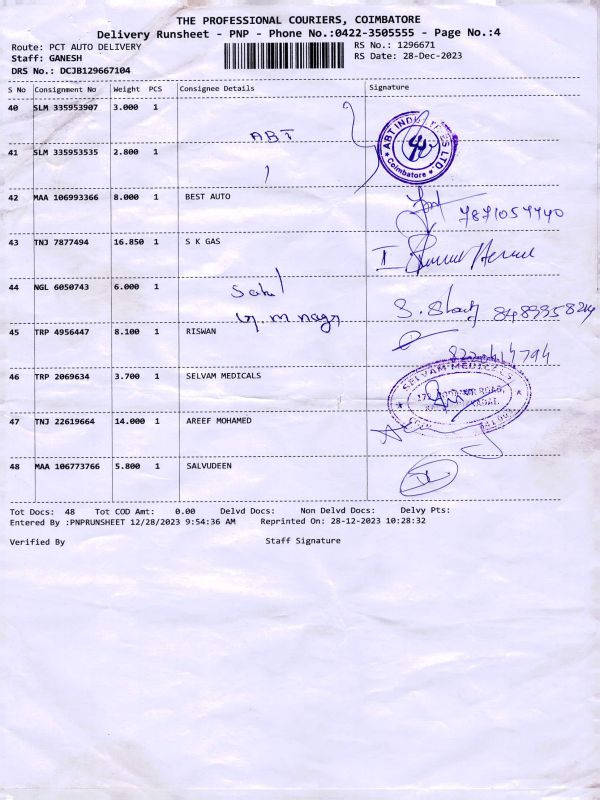 THE PROFESSIONAL COURIERS, COIMBATORE
Delivery Runsheet - PNP - Phone No.:0422-3505555 - Page No.:4
Route: PCT AUTO DELIVERY RS No.: 1296671
Staff: GANESH RS Date: 28-Dec-2023
DRS No.: DCJB129667104
S No Consignment No Weight PCS Consignee Details Signature
40 SLM 335953907 3.000 1
ABT
ABT INDUSTRIES LTD
Coimbatore
41 SLM 335953535 2.800 1
42 MAA 106993366 8.000 1 BEST AUTO
43 TNJ 7877494 16.850 1 S K GAS
44 NGL 6050743 6.000 1
45 TRP 4956447 8.100 1 RISWAN
46 TRP 2069634 3.700 1 SELVAM MEDICALS
SELVAM MEDICALS
47 TNJ 22619664 14.000 1 AREEF MOHAMED
48 MAA 106773766 5.800 1 SALVUDEEN
Tot Docs: 48 Tot COD Amt: 0.00 Delvd Docs: Non Delvd Docs: Delvy Pts:
Entered By :PNPRUNSHEET 12/28/2023 9:54:36 AM Reprinted On: 28-12-2023 10:28:32
Verified By Staff Signature